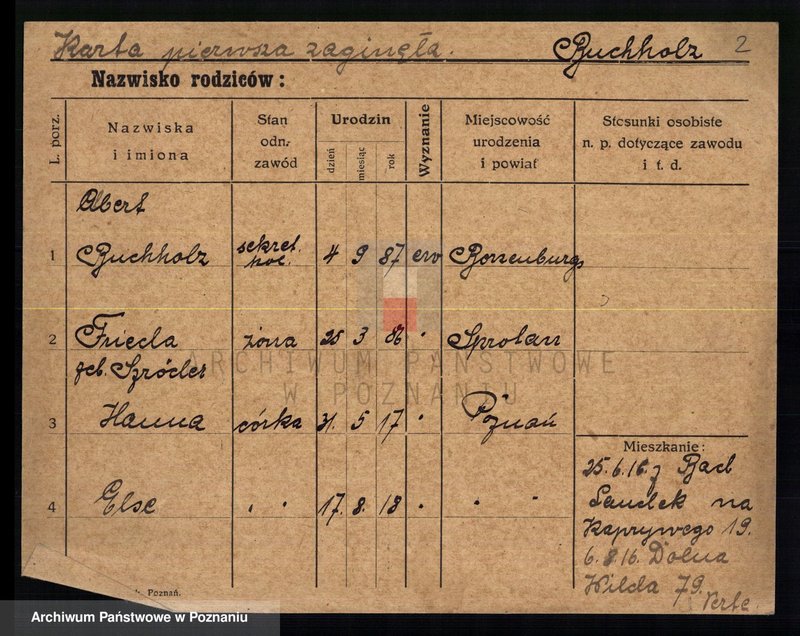 Karta pierwsza zaginęła. Buchholz 2
Nazwisko rodziców:
L. porz.
Nazwiska
i imiona
Stan
odn.
zawód
Urodzin
dzień
miesiąc
rok
Wyznanie
Miejscowość
urodzenia
i powiat
Stosunki osobiste
n. p. dotyczące zawodu
i t. d.
Albert
1 Buchholz sekret. 4 9 87 ew
2 Frieda żona 25 3 86 " Sprotan
geb.
3 Hanna córka 31. 5 17 " Poznań
4 Else " " 17. 8. 18 " " "
Mieszkanie:
25.6.16. z Bad
Landek na
Kaprywego 19.
6.8.16. Dolna
Wilda 79.
Verte
Poznań.
ARCHIWUM PAŃSTWOWE
W POZNANIU
Archiwum Państwowe w Poznaniu